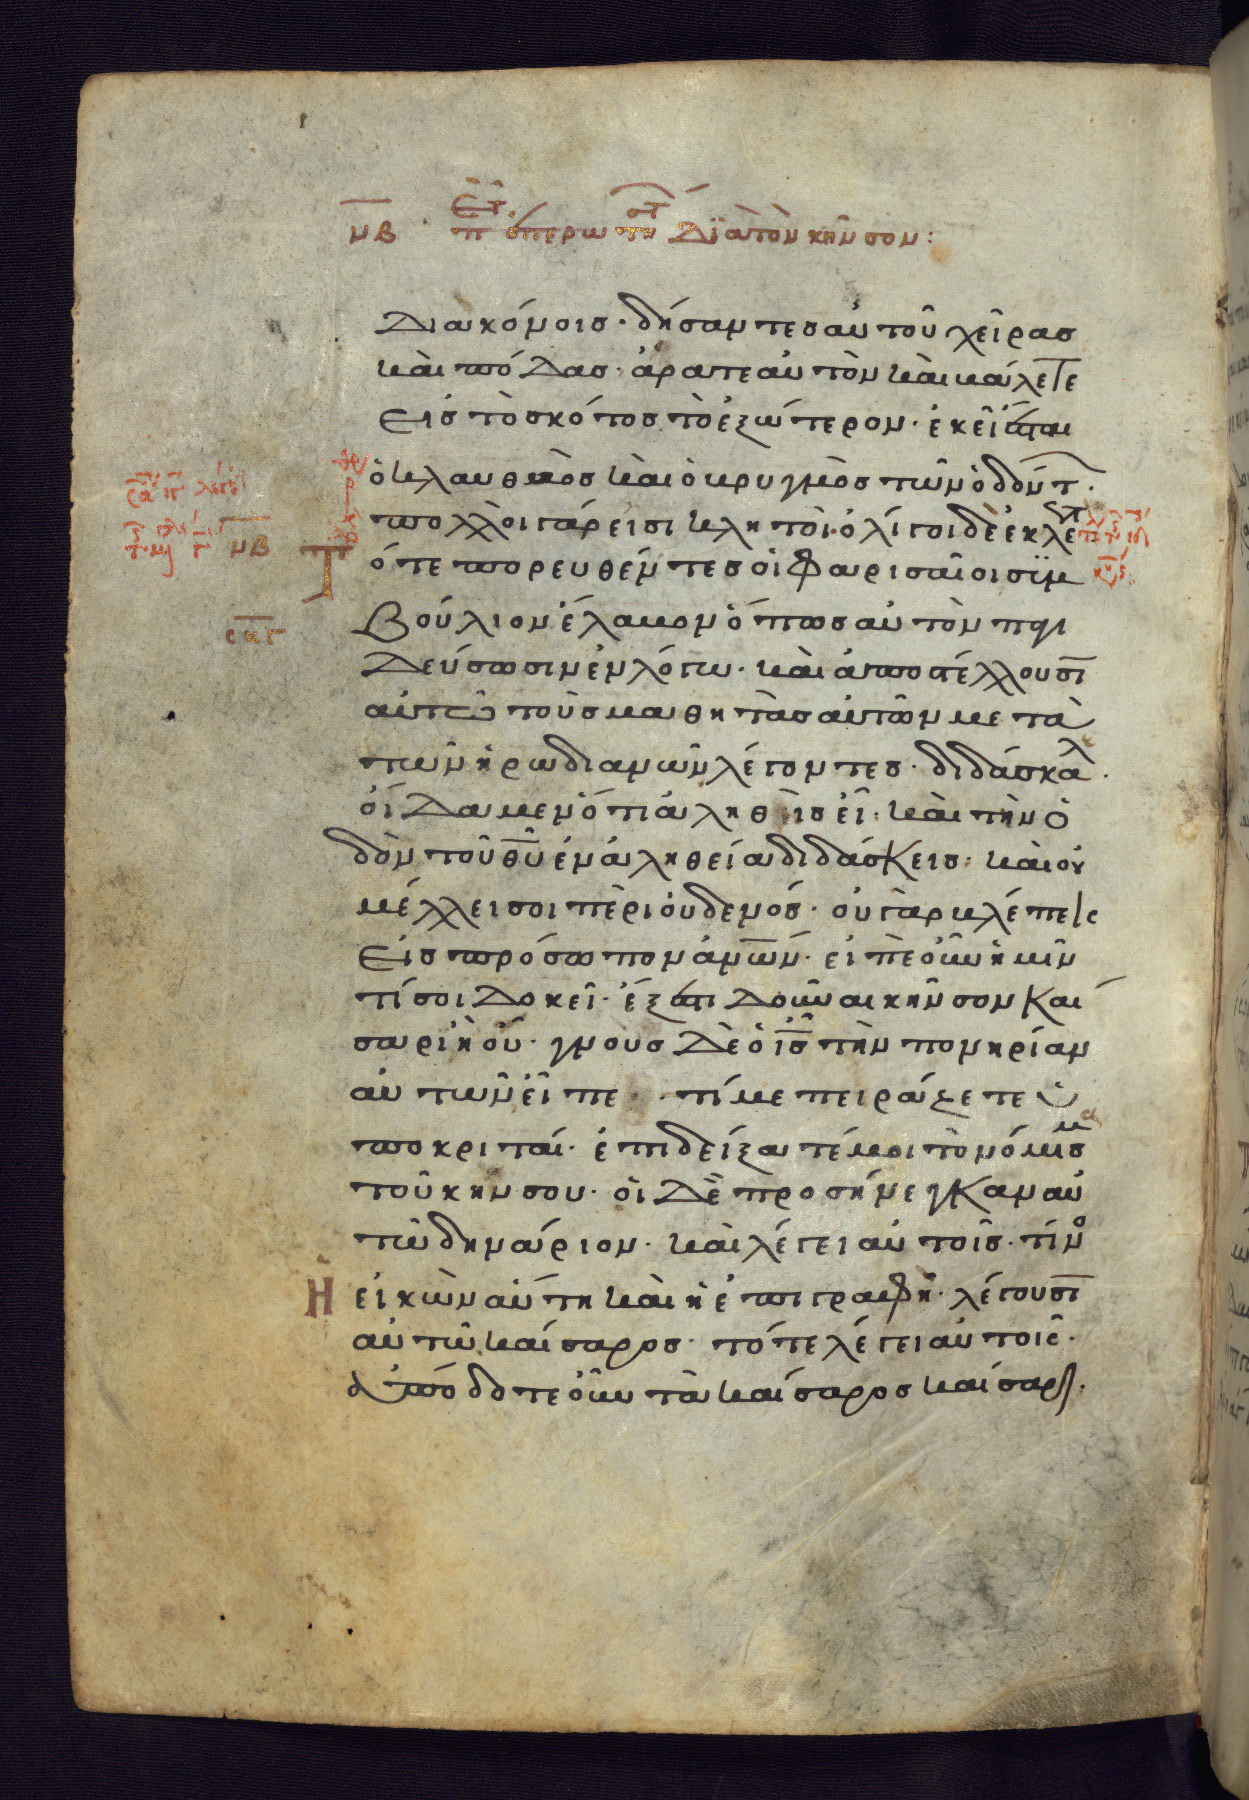 μβ περὶ τῶν ἐπερωτησάντων διὰ τὸν κῆνσον:
διακόνοις· δήσαντες αὐτοῦ χεῖρας
καὶ πόδας· ἄρατε αὐτὸν καὶ βάλετε
εἰς τὸ σκότος τὸ ἐξώτερον· ἐκεῖ ἔσται
ὁ κλαυθμὸς καὶ ὁ βρυγμὸς τῶν ὀδόντ·
πολλοὶ γάρ εἰσι κλητοὶ· ὀλίγοι δὲ ἐκλεκτ
μβ Τότε πορευθέντες οἱ Φαρισαῖοι συμ
σκγ βούλιον ἔλαβον ὅπως αὐτὸν παγι
δεύσωσιν ἐν λόγω· καὶ ἀποστέλλουσι
αὐτῶ τοὺς μαθητὰς αὐτῶν μετὰ
τῶν ἡρωδιανῶν λέγοντες· διδάσκαλ·
οἴδαμεν ὅτι ἀληθὴς εἶ· καὶ τὴν ὁ
δὸν τοῦ θυ ἐν ἀληθεία διδάσκεις· καὶ οὐ
μέλλει σοι περὶ οὐδενός· οὐ γὰρ βλέπεις
εἰς πρόσωπον ἀνων· εἰπὲ οὖν ἡμῖν
τί σοι δοκεῖ· ἔξεστι δοῦναι κῆνσον καί
σαρι ἢ οὔ· γνοὺς δὲ ὁ ις τὴν πονηρίαν
αὐτῶν εἶπε· τί με πειράζετε ὑ
ποκριταί· ἐπιδείξατέ μοι τὸ νόμισμα
τοῦ κηνσου· οἱ δὲ προσήνεγκαν αὐ
τῶ δηνάριον· καὶ λέγει αὐτοῖς· τίνο
Ἡ εἰκὼν αὕτη καὶ ἡ ἐπιγραφή· λέγουσι
αὐτῶ καίσαρος· τότε λέγει αὐτοῖς·
ἀπόδοτε οὖν τὰ καίσαρος καίσαρι·